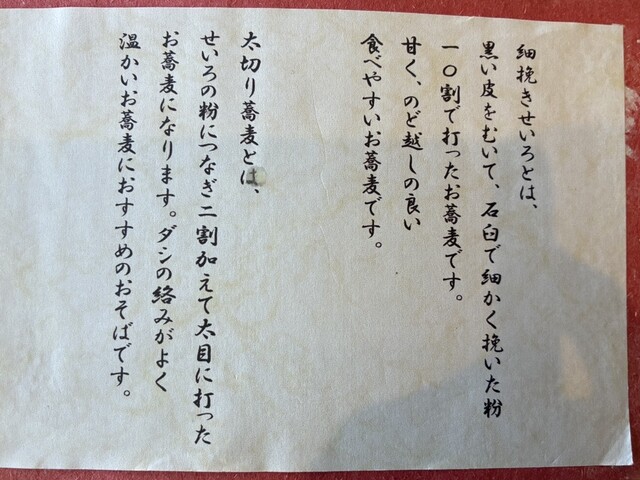 細挽きせいろとは、
黒い皮をむいて、石臼で細かく挽いた粉
一〇割で打ったお蕎麦です。
甘く、のど越しの良い
食べやすいお蕎麦です。
太切り蕎麦とは、
せいろの粉につなぎ二割加えて太目に打った
お蕎麦になります。ダシの絡みがよく
温かいお蕎麦におすすめのおそばです。